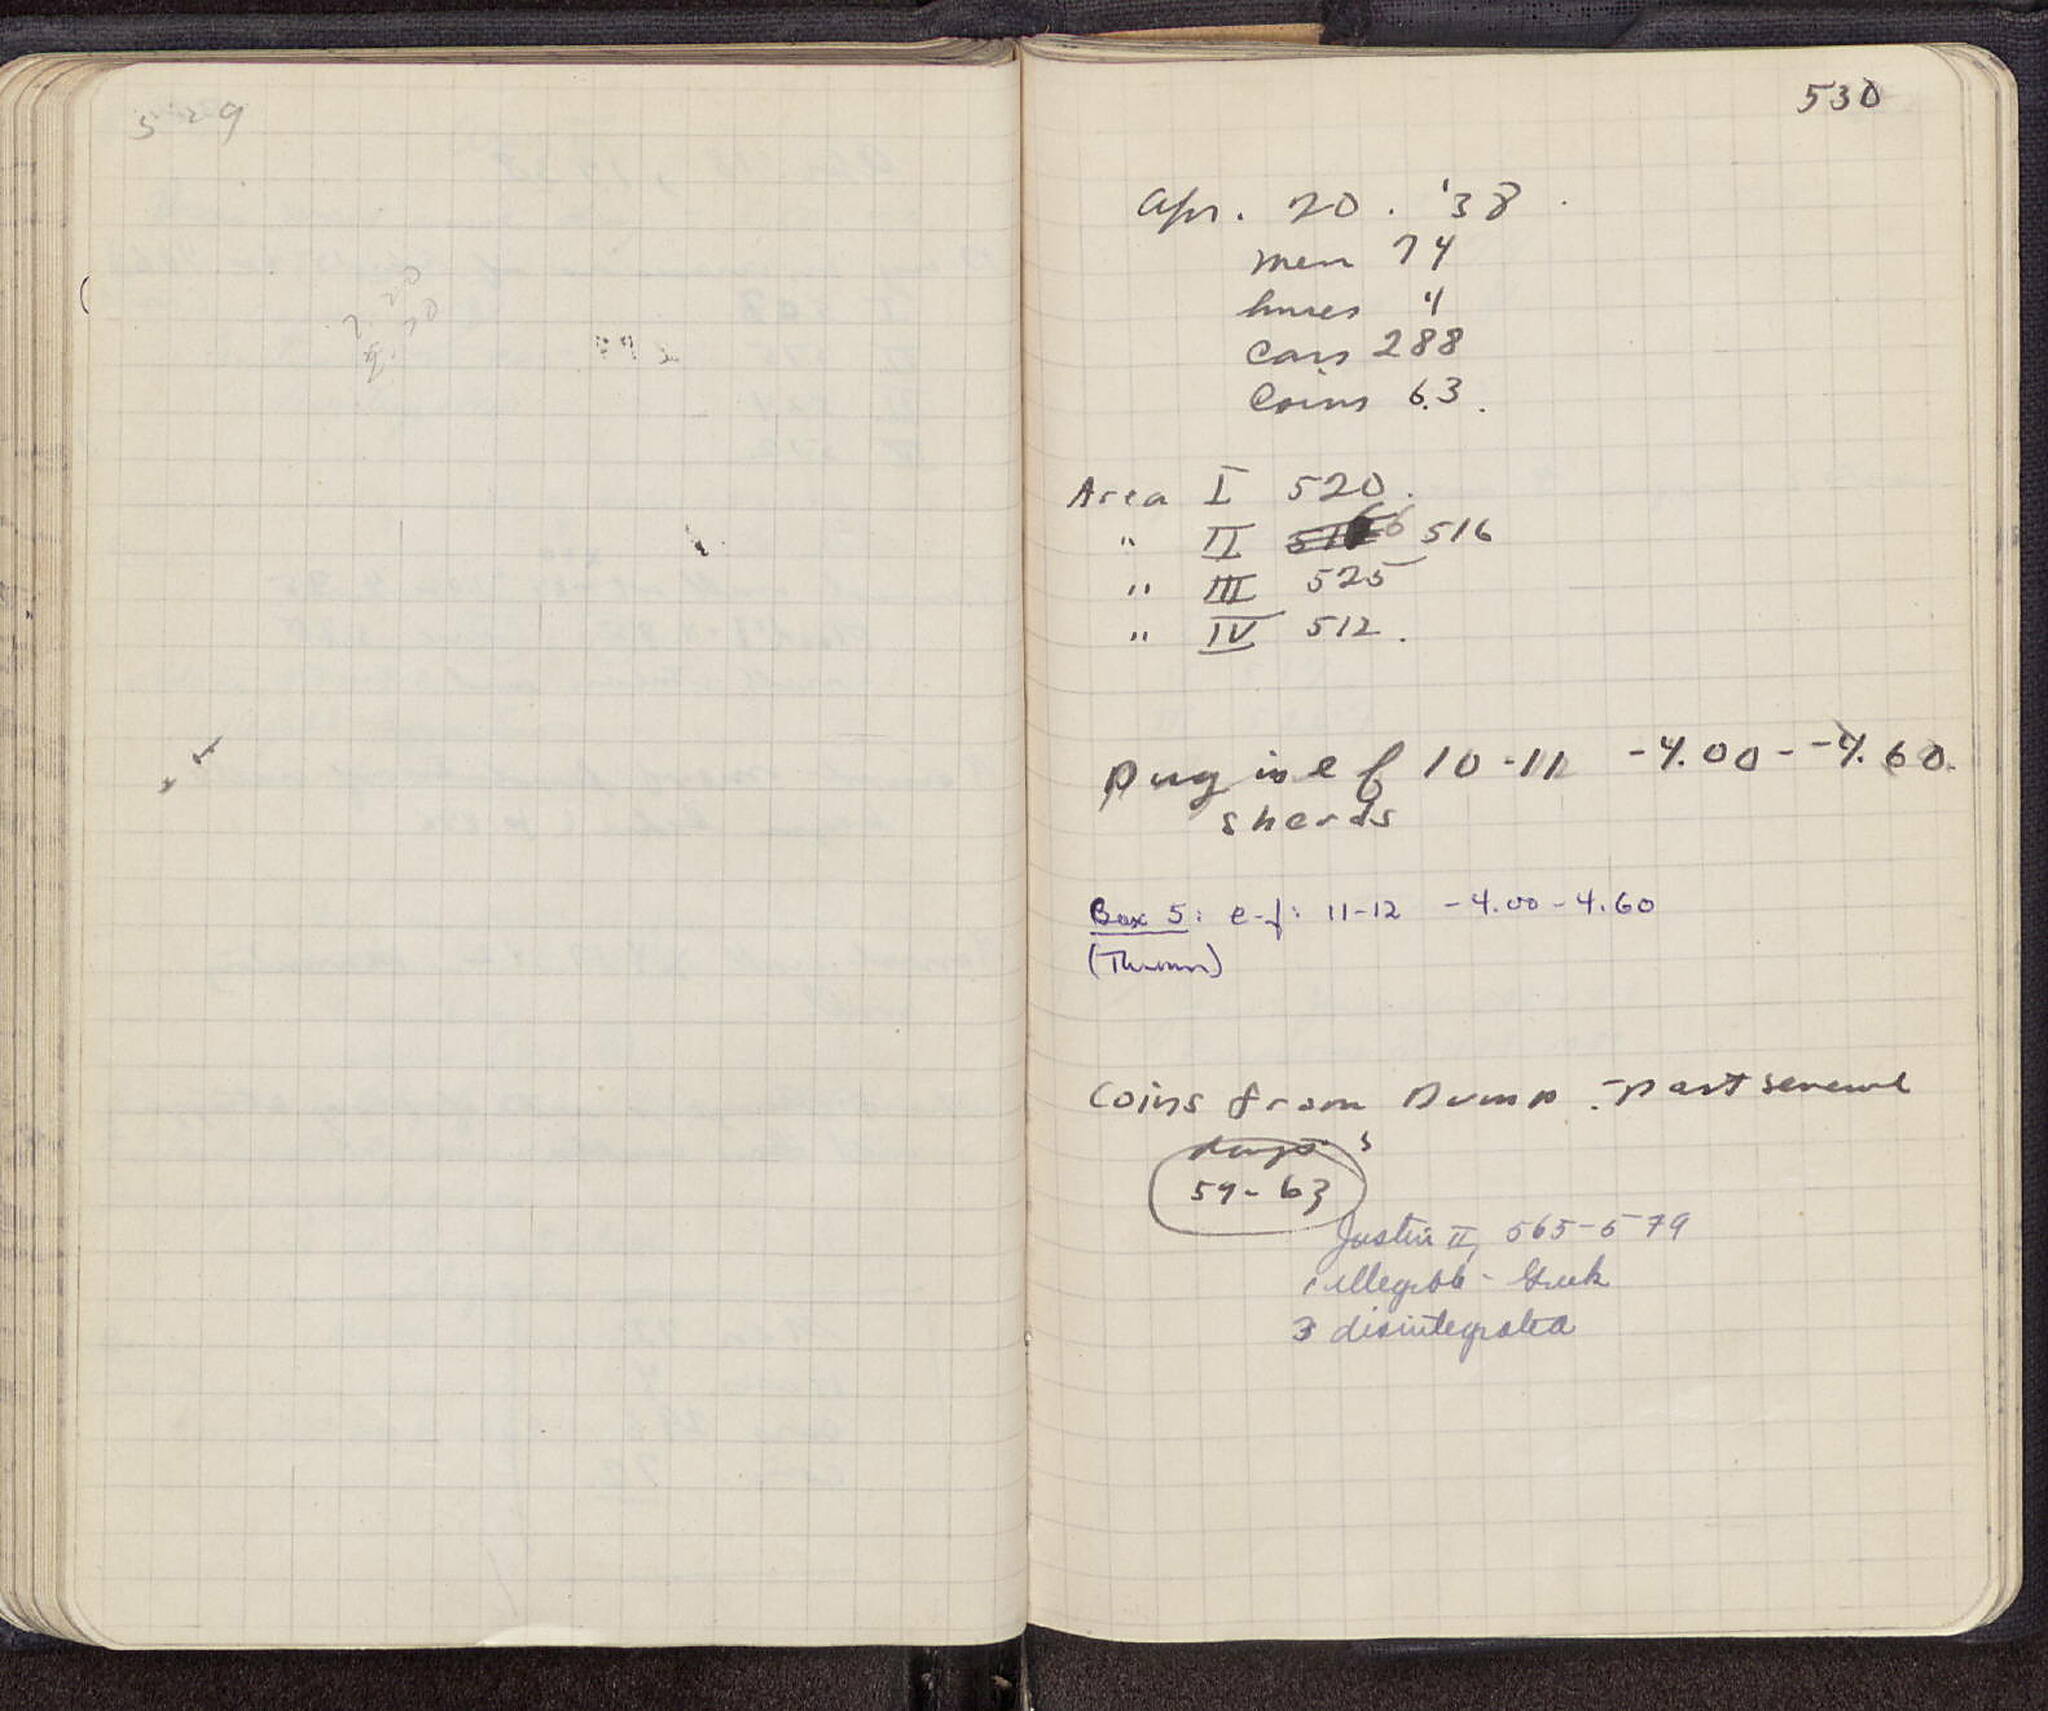 529
7.20
530
Apr. 20. '38.
men 74
horses 4
Cars 288
Coins 63.
Area I 520.
" II 516
" III 525
" IV 512.
Dug in e f 10-11 -4.00 - -4.60.
sherds
Box 5: e-f: 11-12 -4.00-4.60
(Thrown)
Coins from Dump - past several
days
59-63
5
Justin II, 565-579
1 illegible - Greek
3 disintegrated